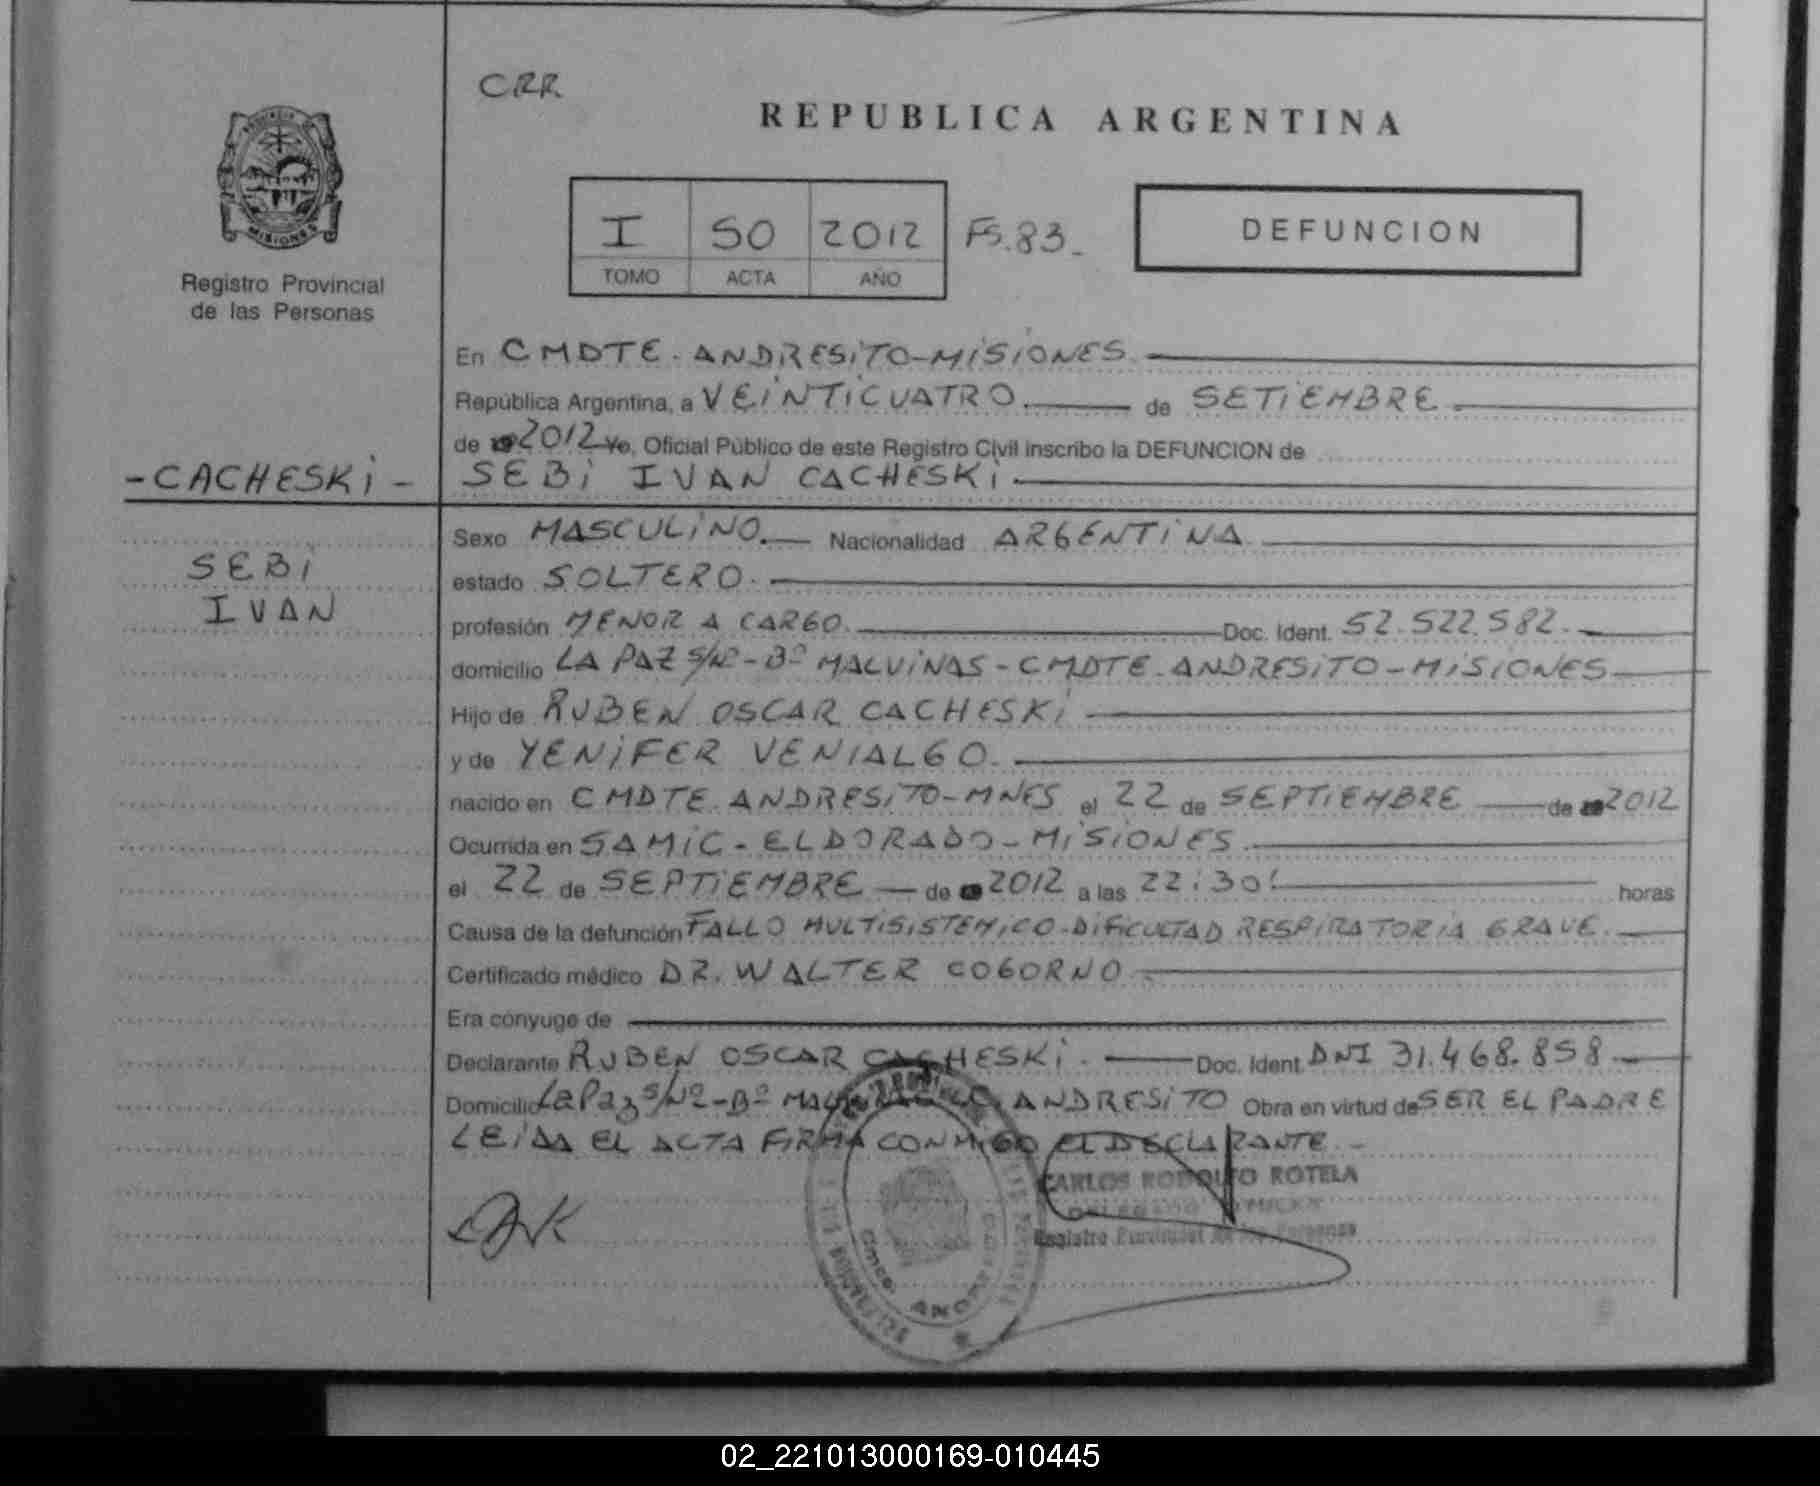 CRR
REPUBLICA ARGENTINA
PROVINCIA DE
MISIONES
Registro Provincial
de las Personas
I 50 2012 FS.83.
TOMO ACTA AÑO
DEFUNCION
En CMDTE. ANDRESITO-MISIONES.
República Argentina, a VEINTICUATRO. de SETIEMBRE
de 2012 Yo, Oficial Público de este Registro Civil inscribo la DEFUNCION de
-CACHESKI- SEBI IVAN CACHESKI.
SEBI
IVAN
Sexo MASCULINO. Nacionalidad ARGENTINA
estado SOLTERO.
profesión MENOR A CARGO. Doc. Ident. 52.522.582.
domicilio LA PAZ S/Nº-Bº MALVINAS-CMDTE. ANDRESITO-MISIONES
Hijo de RUBEN OSCAR CACHESKI
y de YENIFER VENIALGO.
nacido en CMDTE. ANDRESITO-MNES el 22 de SEPTIEMBRE de 2012
Ocurrida en SAMIC-ELDORADO-MISIONES.
el 22 de SEPTIEMBRE de 2012 a las 22:30! horas
Causa de la defunción FALLO MULTISISTEMICO-DIFICULTAD RESPIRATORIA GRAVE.
Certificado médico DR. WALTER COGORNO.
Era cónyuge de
Declarante RUBEN OSCAR CACHESKI. Doc. Ident. DNI 31.468.858
Domicilio La Paz S/Nº-Bº ANDRESITO Obra en virtud de SER EL PADRE
LEIDA EL ACTA FIRMA CONMIGO EL DECLARANTE.-
CARLOS RODOLFO ROTELA
Registro Provincial de las Personas
02_221013000169-010445